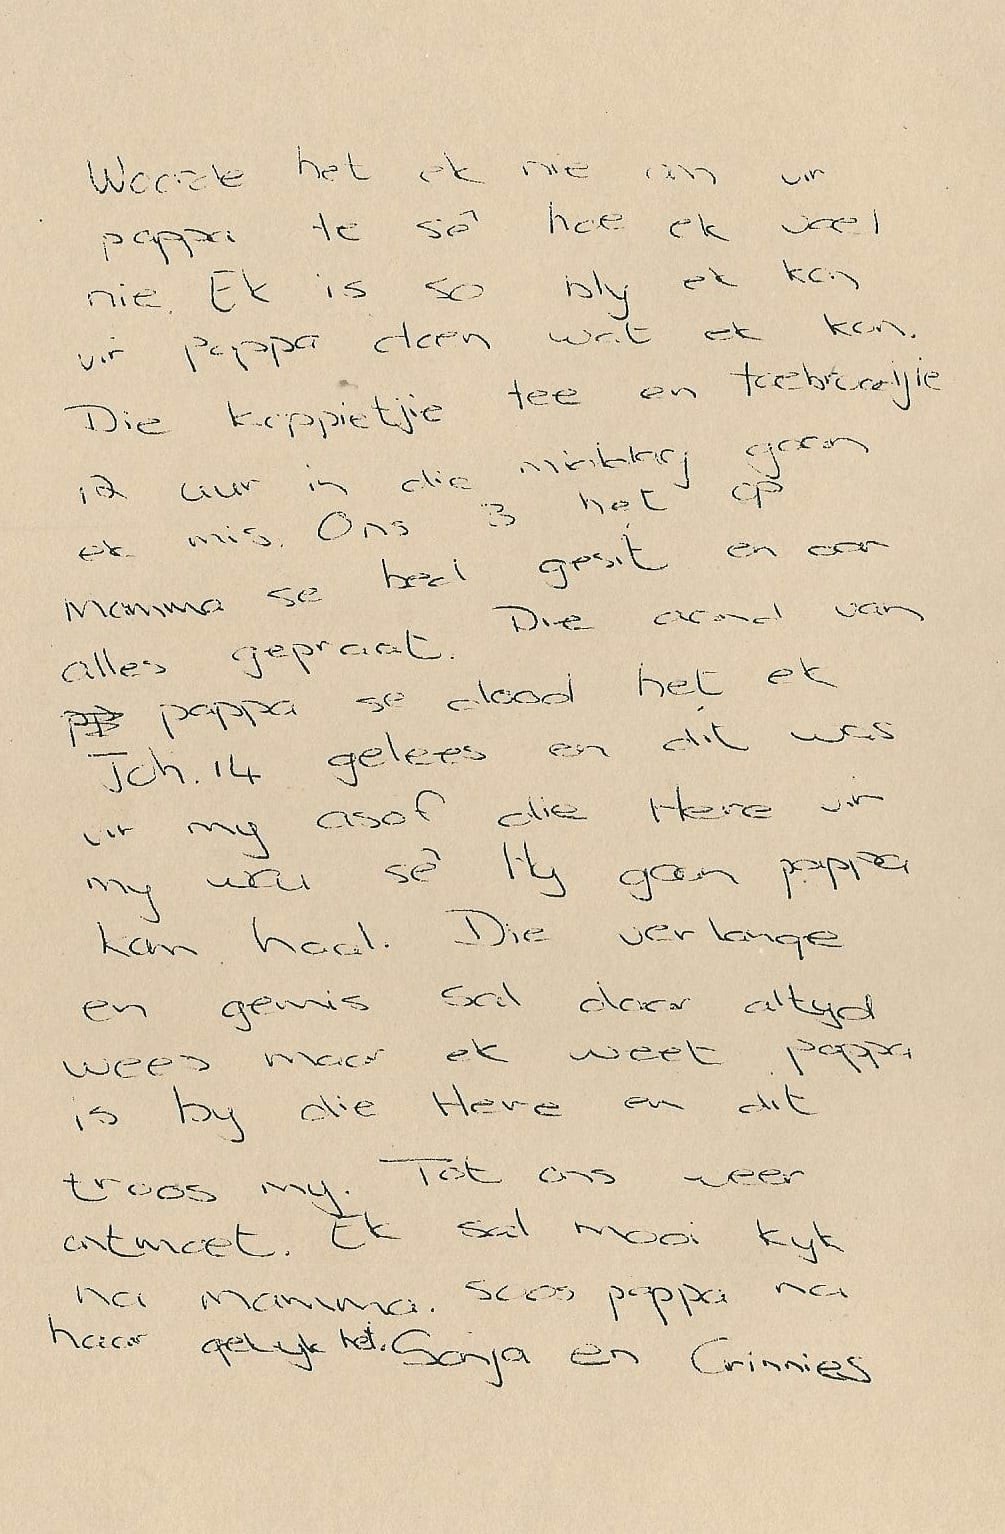 Woorde het ek nie om vir
pappa te sê hoe ek voel
nie. Ek is so bly ek kon
vir pappa doen wat ek kon.
Die koppietjie tee en toebroodjie
12 uur in die middag gaan
ek mis. Ons 3 het op
mamma se bed gesit en oor
alles gepraat. Die aand van
pappa se dood het ek
Joh. 14 gelees en dit was
vir my asof die Here vir
my wou sê Hy gaan pappa
kom haal. Die verlange
en gemis sal daar altyd
wees maar ek weet pappa
is by die Here en dit
troos my. Tot ons weer
ontmoet. Ek sal mooi kyk
na mamma. Soos pappa na
haar gekyk het. Sonja en Crinnies